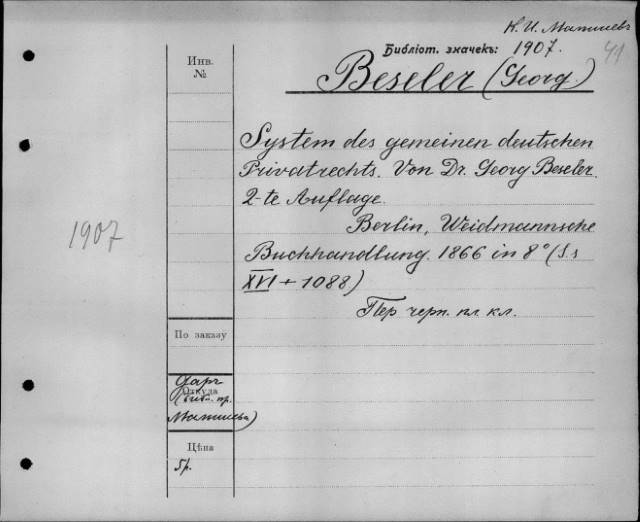 К. И. Малышевъ
Библіот. значекъ: 1907. 41
Beseler (Georg.)
Инв.
№
System des gemeinen deutschen
Privatrechts. Von Dr. Georg Beseler.
2-te Auflage.
Berlin, Weidmannsche
1907
Buchhandlung. 1866 in 8° (S.s
XVI + 1088)
Пер черн. пл. кл.
По заказу
Даръ
Откуда
(библ. пр.
Малышева)
Цѣна
5р.